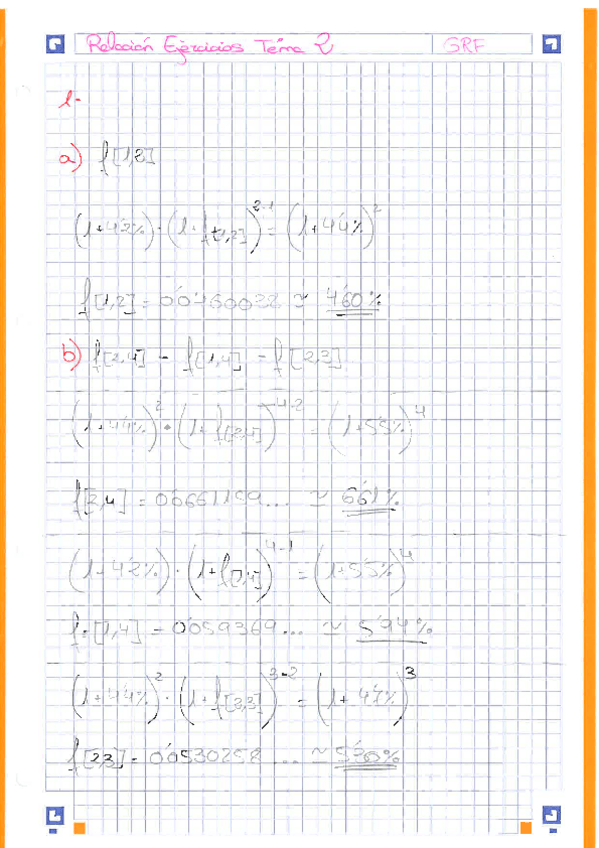 Relación Ejercicios Tema 2 GRF
1-
a) f[1,2]
(1+4'2%)·(1+f[1,2])^2-1 = (1+4'4%)^2
f[1,2] = 0'0460038 ≈ 4'60%
b) f[2,4] - f[1,4] - f[2,3]
(1+4'4%)^2·(1+f[2,4])^4-2 = (1+5'5%)^4
f[2,4] = 0'0661159... ≈ 6'61%
(1+4'2%)·(1+f[1,4])^4-1 = (1+5'5%)^4
f[1,4] = 0'059369... ≈ 5'94%
(1+4'4%)^2·(1+f[2,3])^3-2 = (1+4'7%)^3
f[2,3] = 0'0530258... ≈ 5'30%